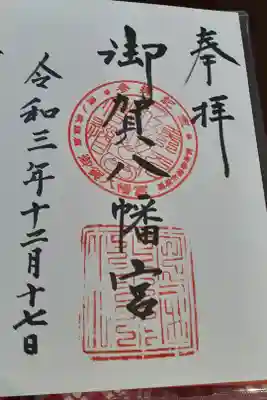 奉拝
御賀八幡宮
令和三年十二月十七日